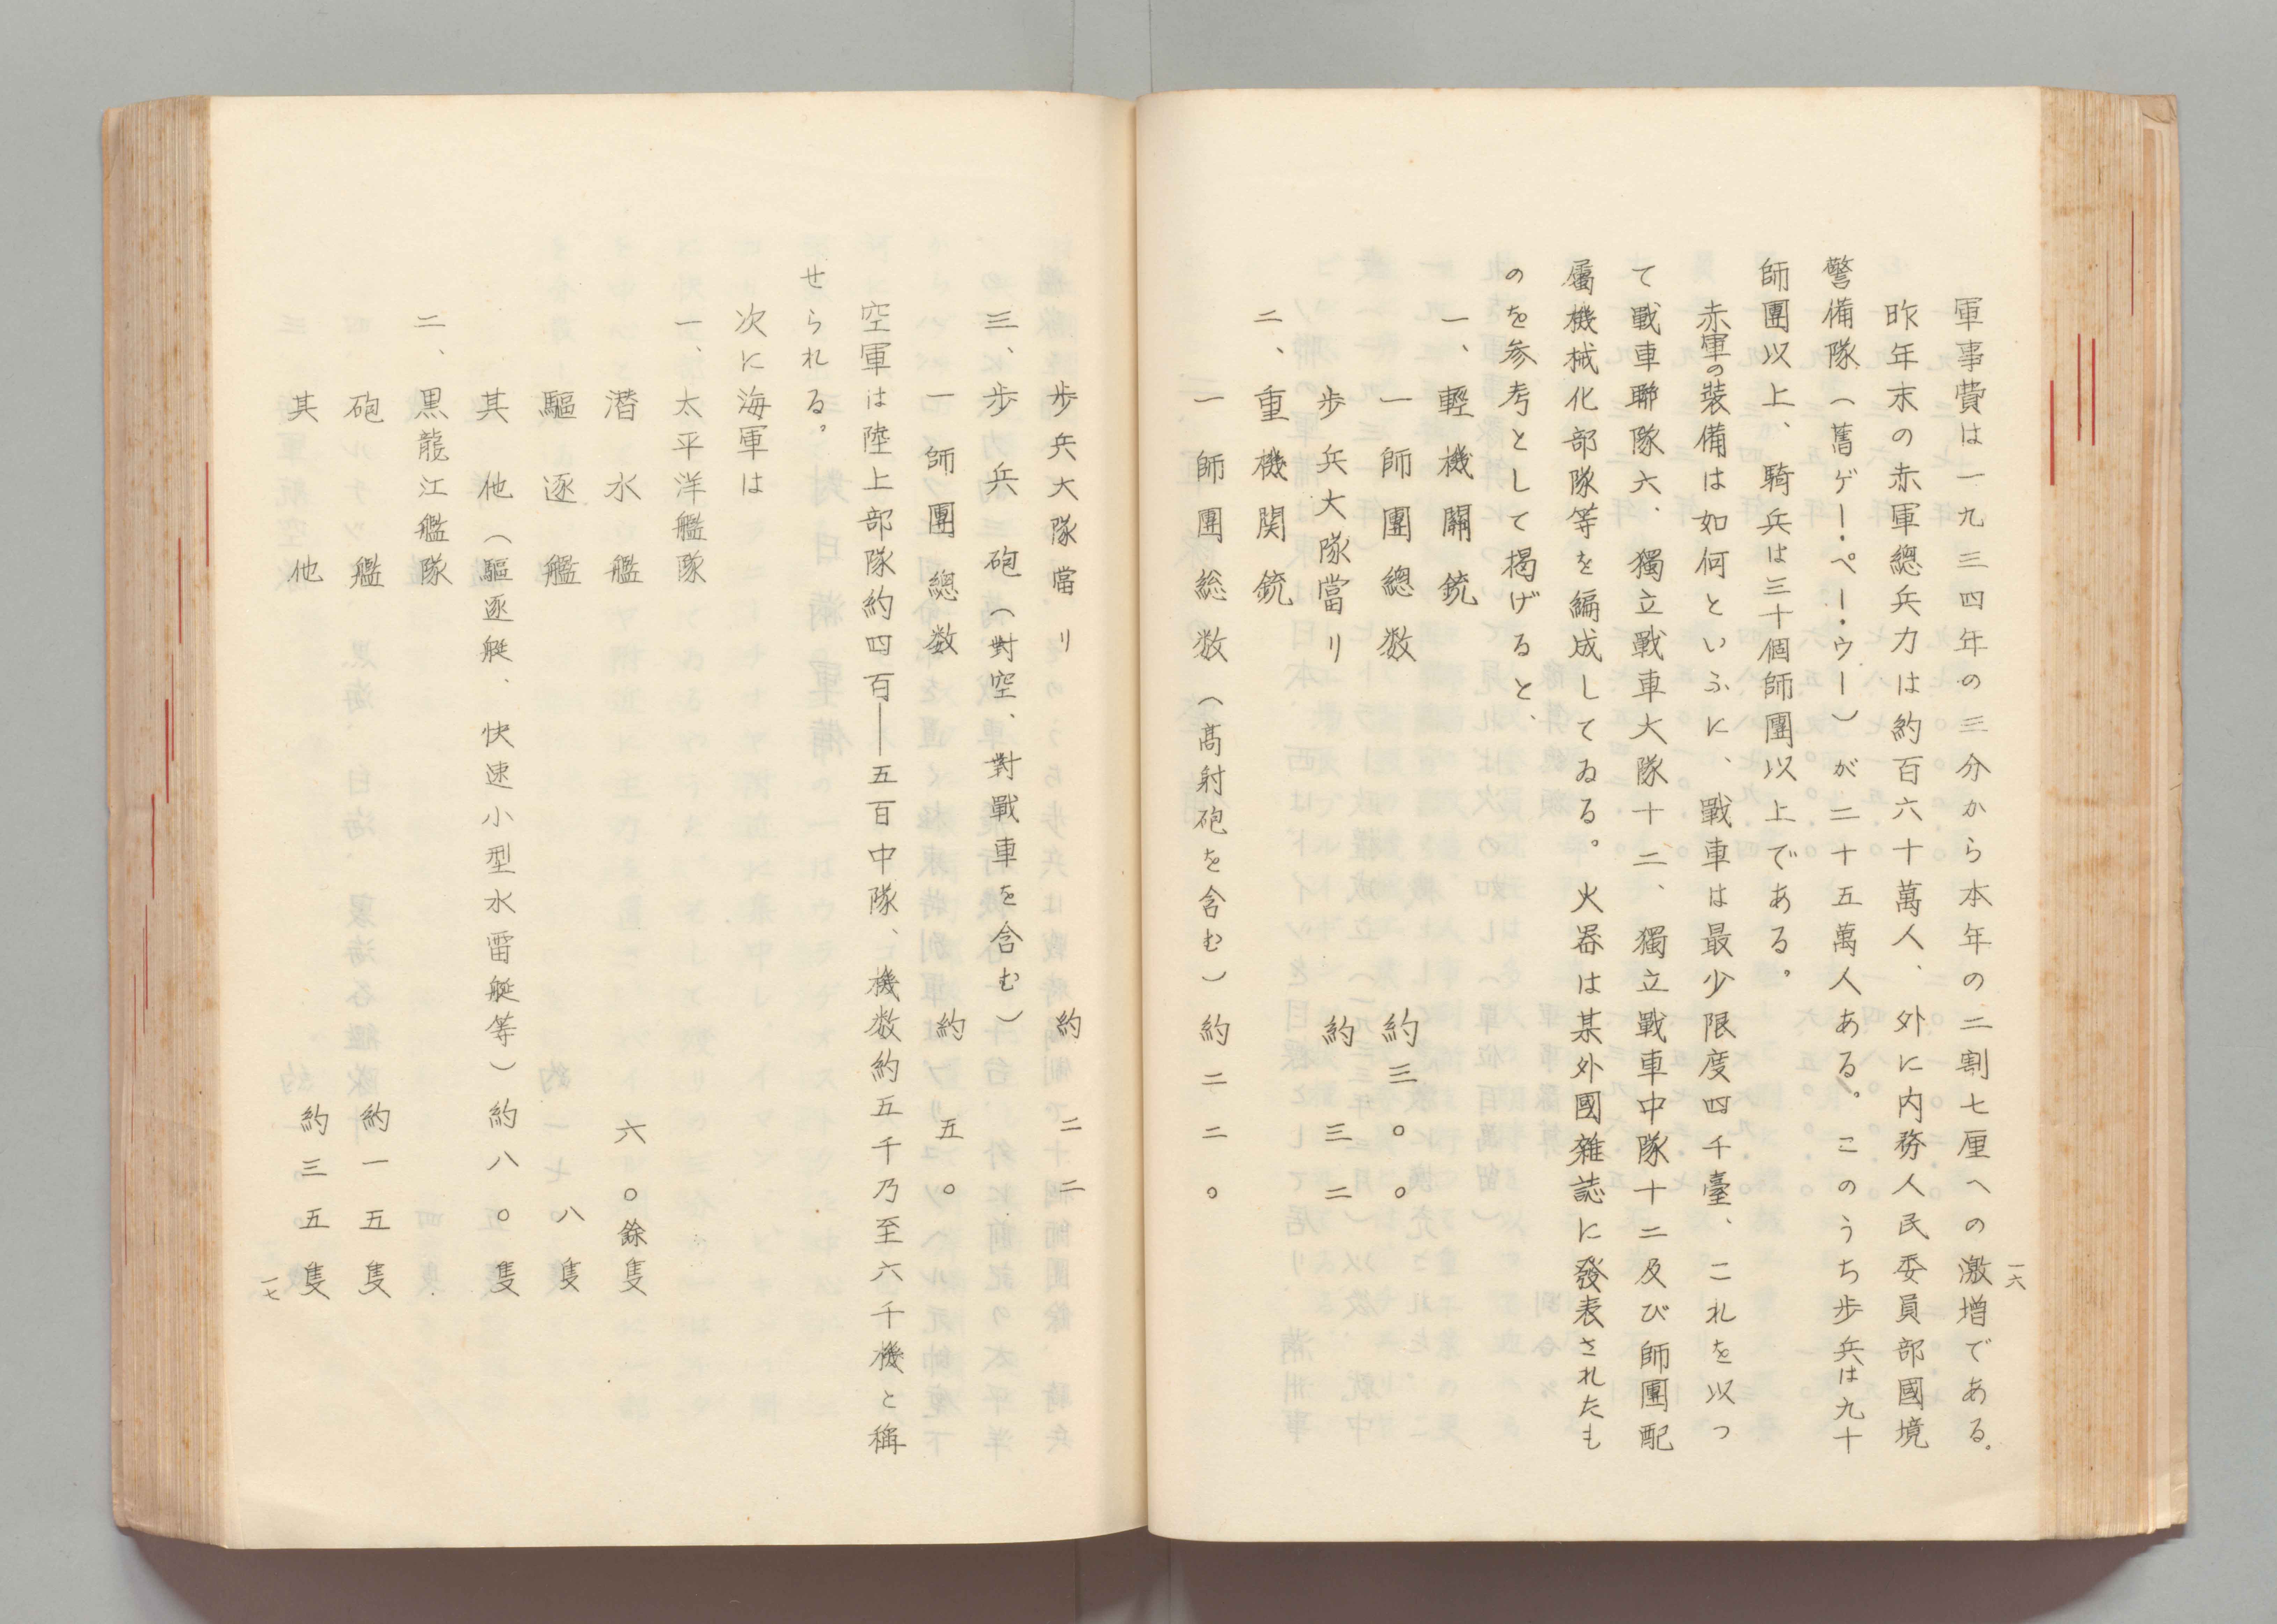 一六
軍事費は一九三四年の三分から本年の二割七厘への激增である。
昨年末の赤軍總兵力は約百六十萬人、外に內務人民委員部國境
警備隊（舊ゲー・ペー・ウー）が二十五萬人ある。このうち步兵は九十
師團以上、騎兵は三十個師團以上である。
赤軍の裝備は如何といふに、戰車は最少限度四千臺、これを以つ
て戰車聯隊六、獨立戰車大隊十二、獨立戰車中隊十二及び師團配
屬機械化部隊等を編成してゐる。火器は某外國雜誌に發表されたも
のを參考として揭げると、
一、輕機關銃
一師團總数 約三〇〇
步兵大隊當リ 約三二
二、重機関銃
一師團総数（高射砲を含む）約二二〇
步兵大隊當リ 約二二
三、步兵砲（對空、對戰車を含む）
一師團總数 約五〇
空軍は陸上部隊約四百——五百中隊、機数約五千乃至六千機と稱
せられる。
次に海軍は
一、太平洋艦隊
潜水艦 六〇餘隻
驅逐艦 八隻
其他（驅逐艇、快速小型水雷艇等）約八〇隻
二、黒龍江艦隊
砲艦 約一五隻
其他 約三五隻
一七